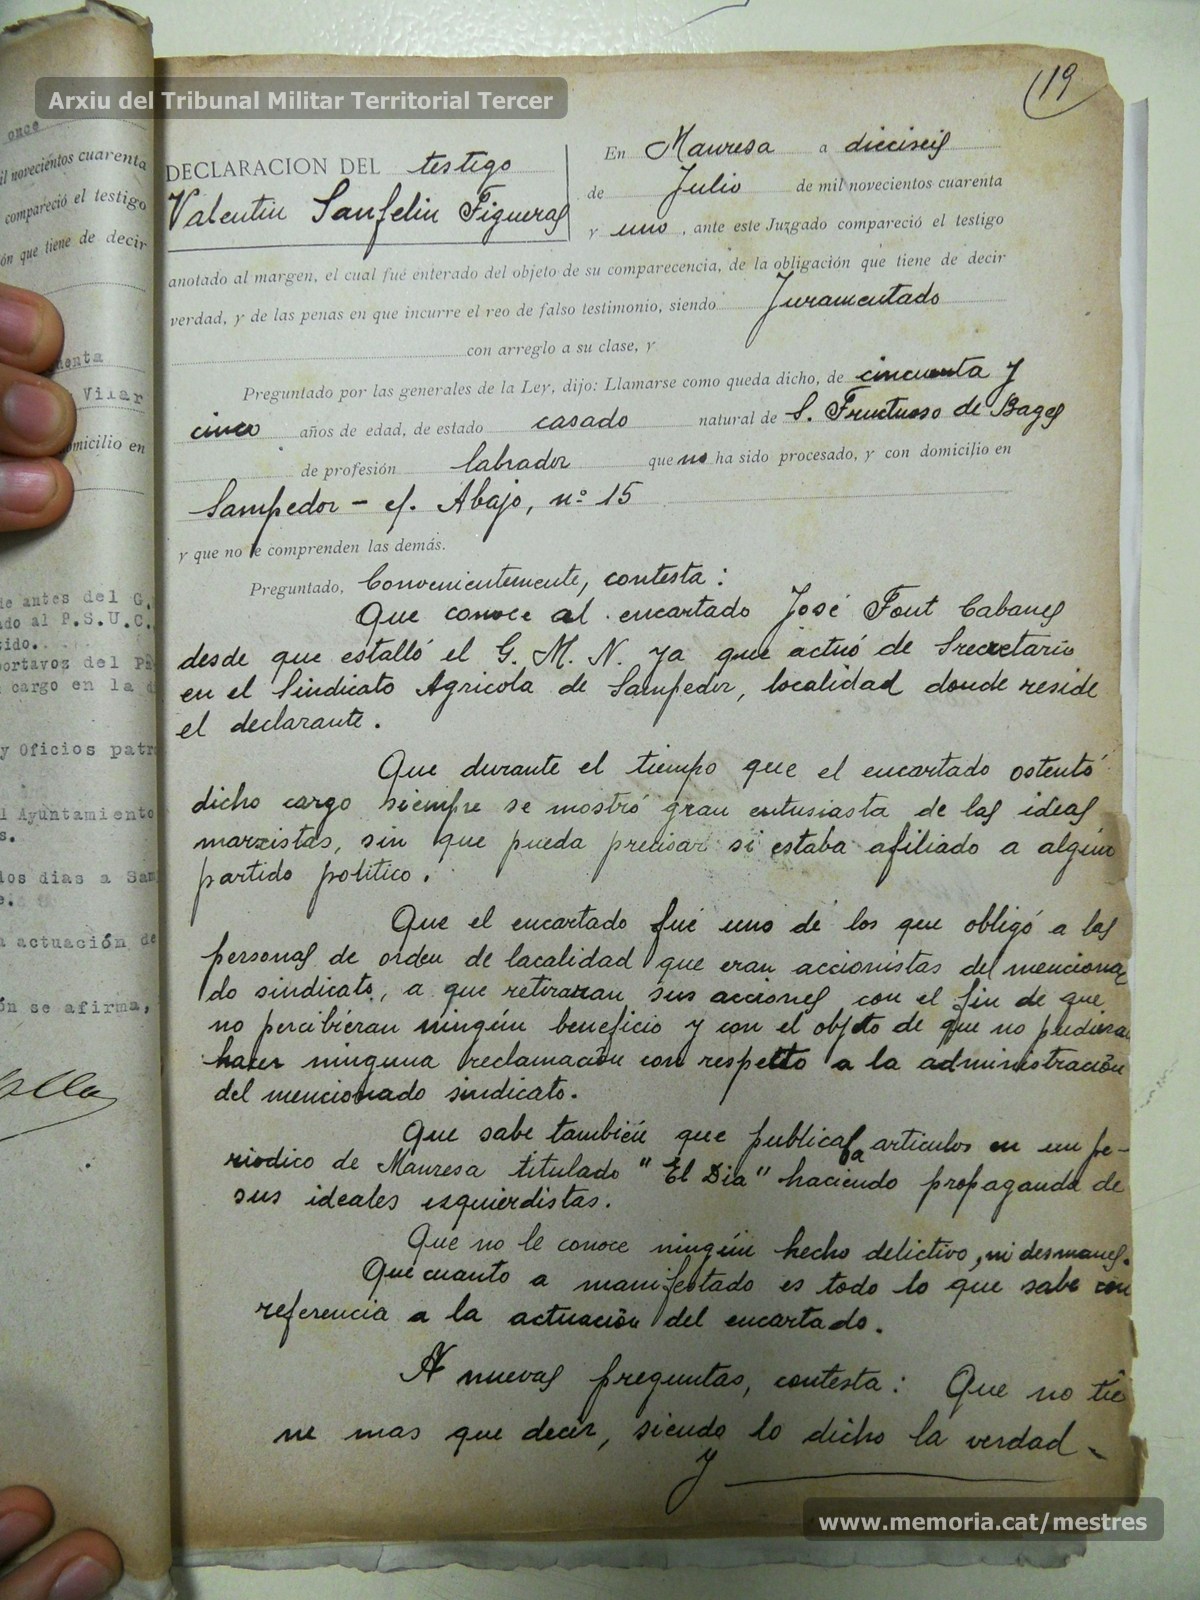 Arxiu del Tribunal Militar Territorial Tercer
19
once
mil novecientos cuarenta
compareció el testigo
ión que tiene de decir
Vilar
omicilio en
de antes del G.
ado al P.S.U.C.
tido.
portavoz del P
cargo en la
y Oficios patr
l Ayuntamiento
s.
los dias a San
e.
a actuación de
ón se afirma,
DECLARACION DEL testigo
Valentin Sanfeliu Figueras
En Manresa a dieciseis
de Julio de mil novecientos cuarenta
y uno, ante este Juzgado compareció el testigo
anotado al margen, el cual fué enterado del objeto de su comparecencia, de la obligación que tiene de decir
verdad, y de las penas en que incurre el reo de falso testimonio, siendo Juramentado
con arreglo a su clase, y
Preguntado por las generales de la Ley, dijo: Llamarse como queda dicho, de cincuenta y
cinco años de edad, de estado casado natural de S. Fructuoso de Bages
de profesión labrador que no ha sido procesado, y con domicilio en
Sampedor - c/. Abajo, nº 15
y que no le comprenden las demás.
Preguntado, Convenientemente, contesta:
Que conoce al encartado José Font Cabanes
desde que estalló el G. M. N. ya que actuó de Secretario
en el Sindicato Agricola de Sampedor, localidad donde reside
el declarante.
Que durante el tiempo que el encartado ostentó
dicho cargo siempre se mostró gran entusiasta de las ideas
marxistas, sin que pueda precisar si estaba afiliado a algún
partido politico.
Que el encartado fué uno de los que obligó a las
personas de orden de lacalidad que eran accionistas del menciona
do sindicato, a que retiraran sus acciones con el fin de que
no percibiéran ningún beneficio y con el objeto de que no pudieran
hacer ninguna reclamación con respetto a la administración
del mencionado sindicato.
Que sabe también que publicaba articulos en un pe-
riodico de Manresa titulado "El Dia" haciendo propaganda de
sus ideales izquierdistas.
Que no le conoce ningún hecho delictivo, ni desmanes.
Que cuanto a manifestado es todo lo que sabe con
referencia a la actuación del encartado.
A nuevas preguntas, contesta: Que no tie
ne mas que decir, siendo lo dicho la verdad
y
www.memoria.cat/mestres